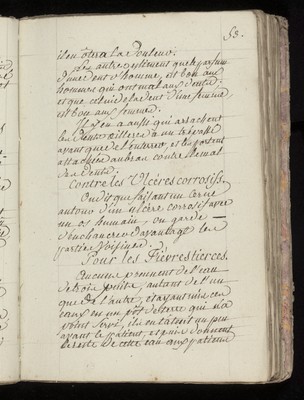 53.
il en ôtera la douleur.
Les autres estiment que le parfum
d'une dent d'homme, est bon aux
hommes qui ont mal aux dents;
et que celui de la dent d'une femme
est bon aux femmes.
Il y en a aussi qui arrachent
les dents à un trépassé
avant que de l'enterrer, et les portent
attachées au bras contre le mal
de dents.
Contre les Ulcères corrosifs.
On dit que faisant un cerne
autour d'un ulcère corrosif avec
un os humain, on garde
d'enchancrer davantage les
parties voisines.
Pour les Fièvres tierces.
Aucuns prennent de l'eau
de trois puits, autant de l'un
que de l'autre, et ayant mis ces
eaux en un pot de terre qui n'a
point servi, ils en un peu
avant le patient, et puis donnent
le reste de cette eau aux patiens